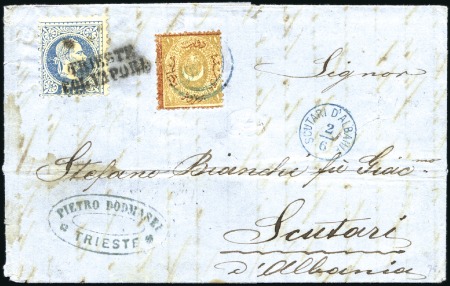 TRIESTE
COL VAPORE
Signor
SCUTARI D'ALBANIA
2
6
Stefano Bianchi fu Giac.mo
PIETRO DODMASEI
TRIESTE
Scutari
d'Albania